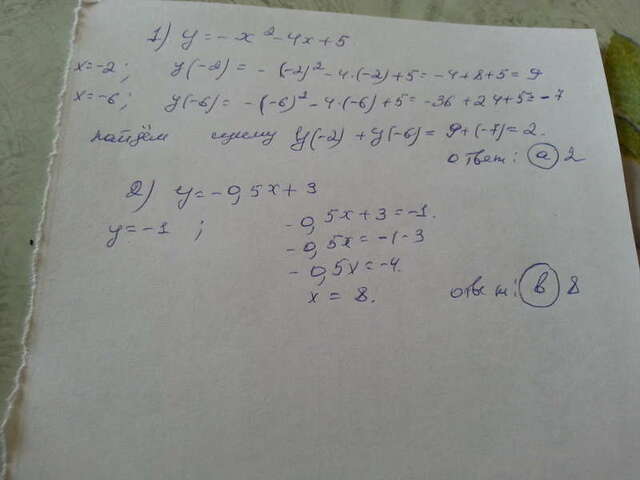 1) y = -x² - 4x + 5
x = -2; y(-2) = -(-2)² - 4·(-2) + 5 = -4 + 8 + 5 = 9
x = -6; y(-6) = -(-6)² - 4·(-6) + 5 = -36 + 24 + 5 = -7
найдём сумму y(-2) + y(-6) = 9 + (-7) = 2.
ответ: а 2
2) y = -0,5x + 3
y = -1; -0,5x + 3 = -1.
-0,5x = -1 - 3
-0,5x = -4.
x = 8.
ответ: в 8